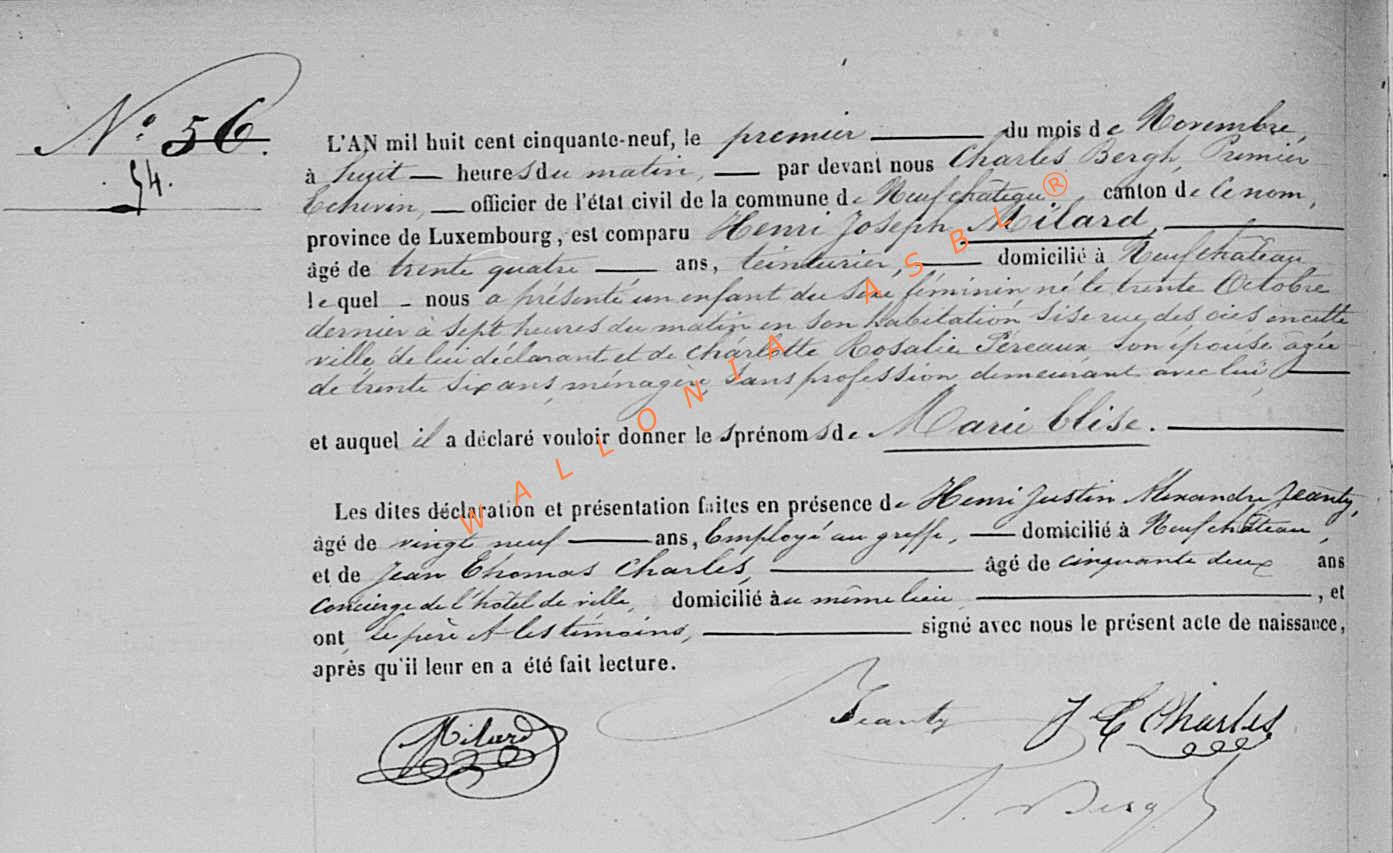 N.° 56.
54.
L'AN mil huit cent cinquante-neuf, le premier du mois de Novembre,
à huit heures du matin, par devant nous Charles Bergh, Premier
Echevin, officier de l'état civil de la commune de Neufchâteau canton de ce nom,
province de Luxembourg, est comparu Henri Joseph Milard,
âgé de trente quatre ans, teinturier, domicilié à Neufchateau
lequel nous a présenté un enfant du sexe féminin né le trente Octobre
dernier à sept heures du matin en son habitation sise rue des oies en cette
ville, de lui déclarant et de Charlotte Rosalie Péreaux son épouse, agée
de trente six ans, ménagère, sans profession demeurant avec lui,
et auquel il a déclaré vouloir donner les prénoms de Marie Elise.
Les dites déclaration et présentation faites en présence de Henri Justin Alexandre Jeanty,
âgé de vingt neuf ans, Employé au greffe, domicilié à Neufchâteau,
et de Jean Thomas Charles, âgé de cinquante deux ans
Concierge de l'hôtel de ville, domicilié au même lieu, et
ont, le père et les témoins, signé avec nous le présent acte de naissance,
après qu'il leur en a été fait lecture.
Milard Jeanty J T Charles
Bergh
WALLONIA ASBL®